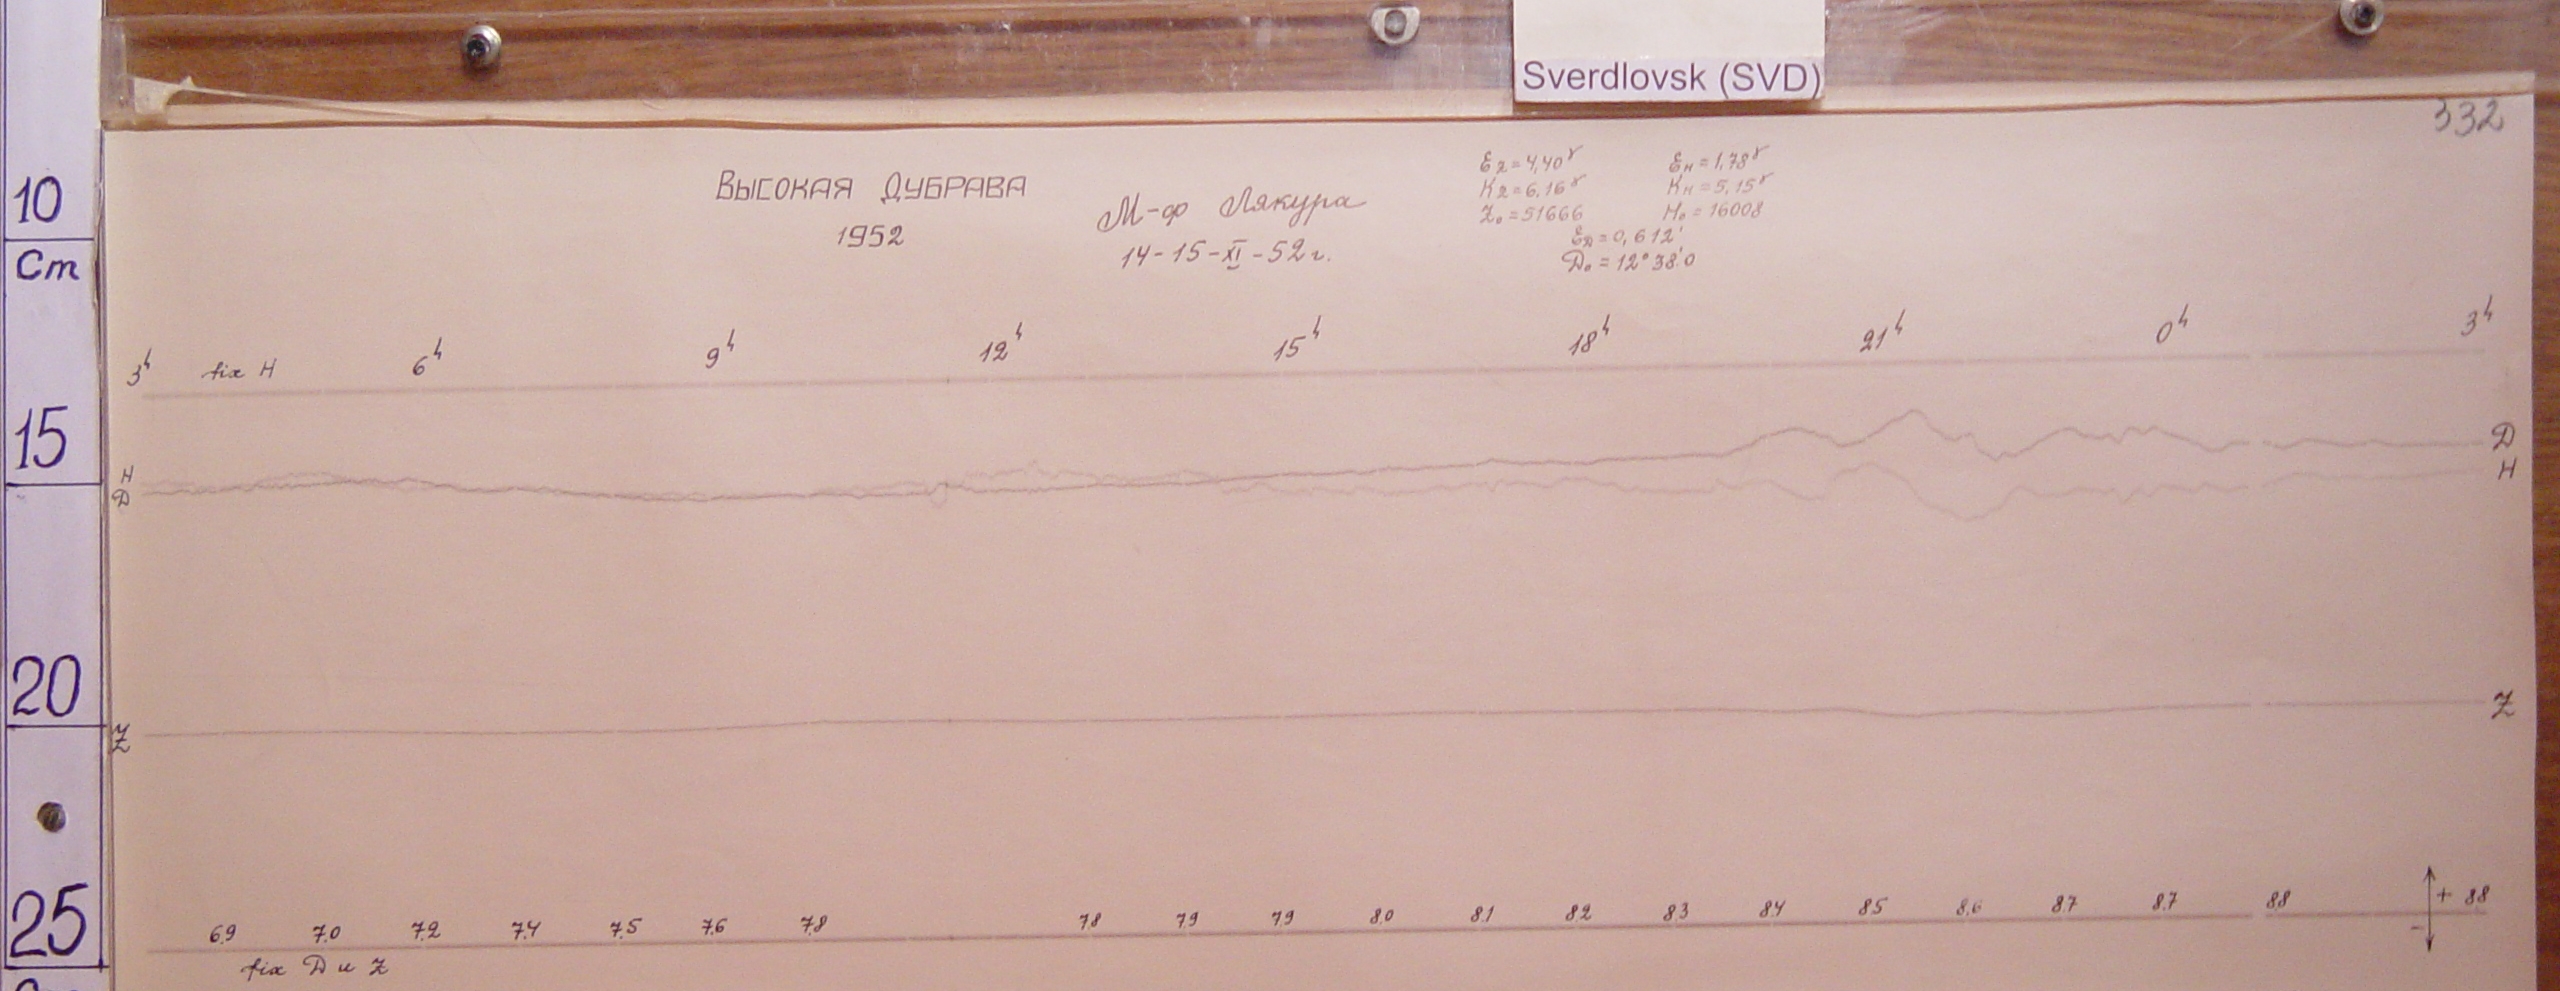 Sverdlovsk (SVD)
332
10
Cm
15
20
25
ВЫСОКАЯ ДУБРАВА
1952
М-ф Лякура
14-15-XI-52 г.
Ez = 4,40γ
Kz = 6.16γ
Z₀ = 51666
Eн = 1.78γ
Kн = 5,15γ
H₀ = 16008
E_D = 0,612'
D₀ = 12°38'.0
3h fix H 6h 9h 12h 15h 18h 21h 0h 3h
H
D
D
H
Z
Z
6.9 7.0 7.2 7.4 7.5 7.6 7.8 7.8 7.9 7.9 8.0 8.1 8.2 8.3 8.4 8.5 8.6 8.7 8.7 8.8 + 8.8
-
fix D и Z